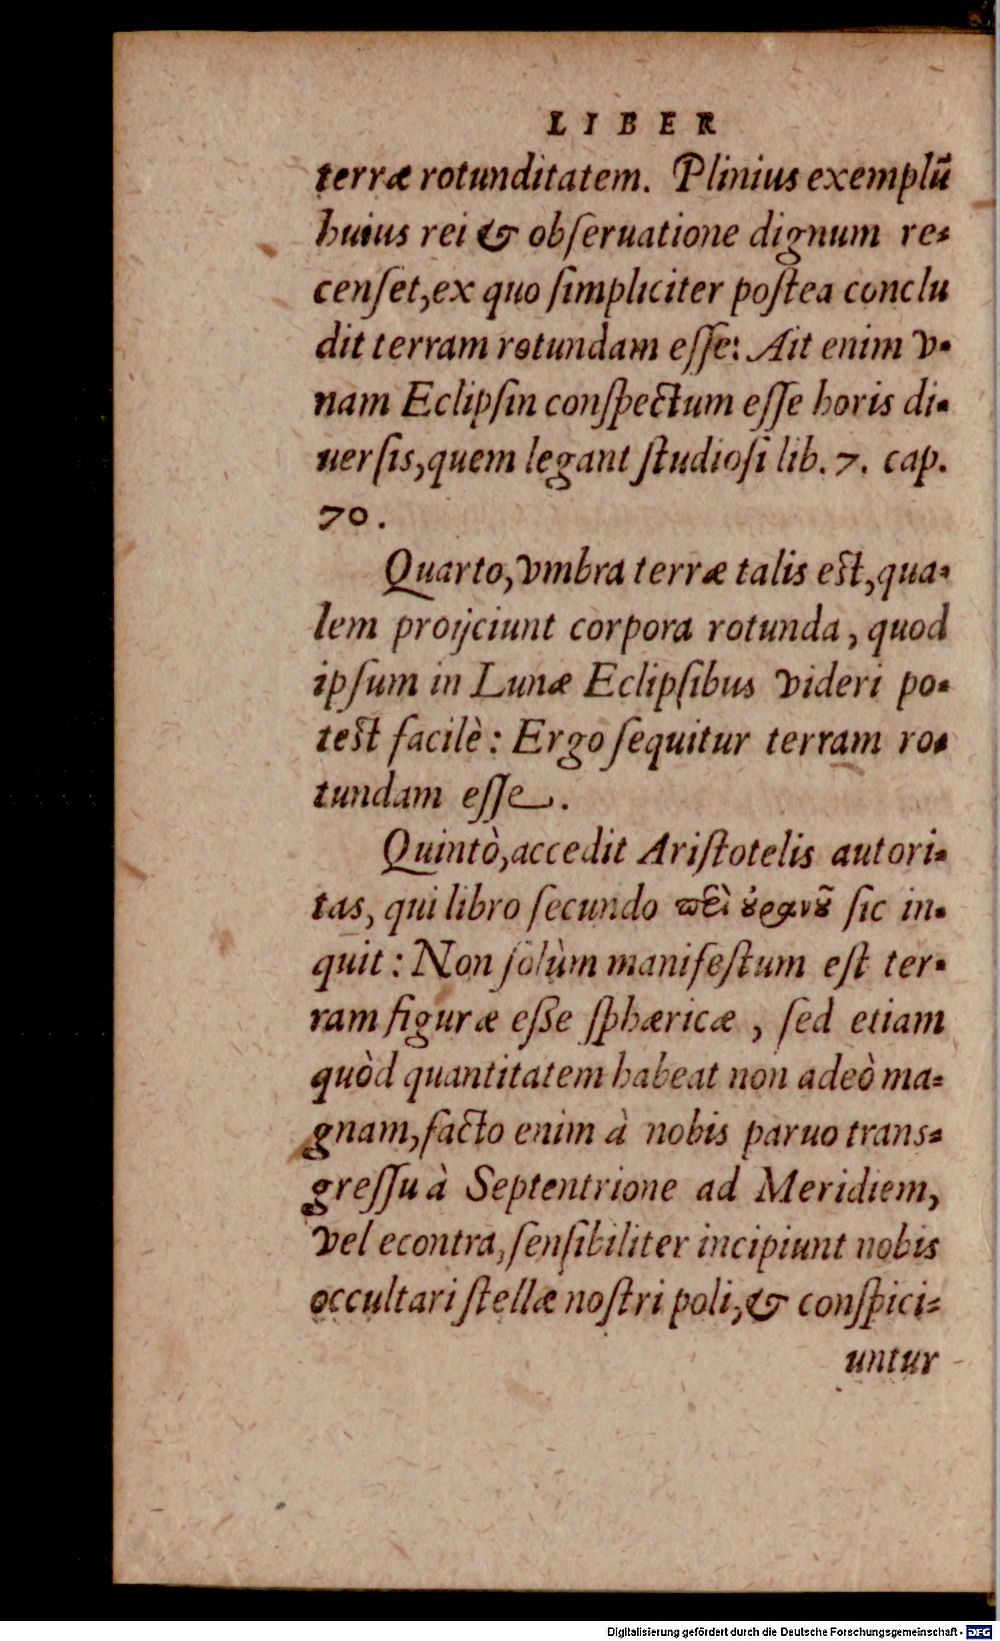 LIBER
terræ rotunditatem. Plinius exemplũ
huius rei & obſeruatione dignum re-
cenſet, ex quo ſimpliciter poſtea conclu
dit terram rotundam eſſe: Ait enim v-
nam Eclipſin conſpectum eſſe horis di-
uerſis, quem legant ſtudioſi lib. 7. cap.
70.
Quarto, vmbra terræ talis eſt, qua-
lem proijciunt corpora rotunda, quod
ipſum in Lunæ Eclipſibus videri po-
teſt facilè: Ergo ſequitur terram ro-
tundam eſſe.
Quintò, accedit Ariſtotelis autori-
tas, qui libro ſecundo ϖεὶ ȣ̓ρανȣ͂ ſic in-
quit: Non ſolùm manifeſtum eſt ter-
ram figuræ eſſe ſphæricæ, ſed etiam
quòd quantitatem habeat non adeò ma-
gnam, facto enim à nobis paruo trans-
greſſu à Septentrione ad Meridiem,
vel econtra, ſenſibiliter incipiunt nobis
occultari ſtellæ noſtri poli, & conſpici-
untur
Digitalisierung gefördert durch die Deutsche Forschungsgemeinschaft - DFG